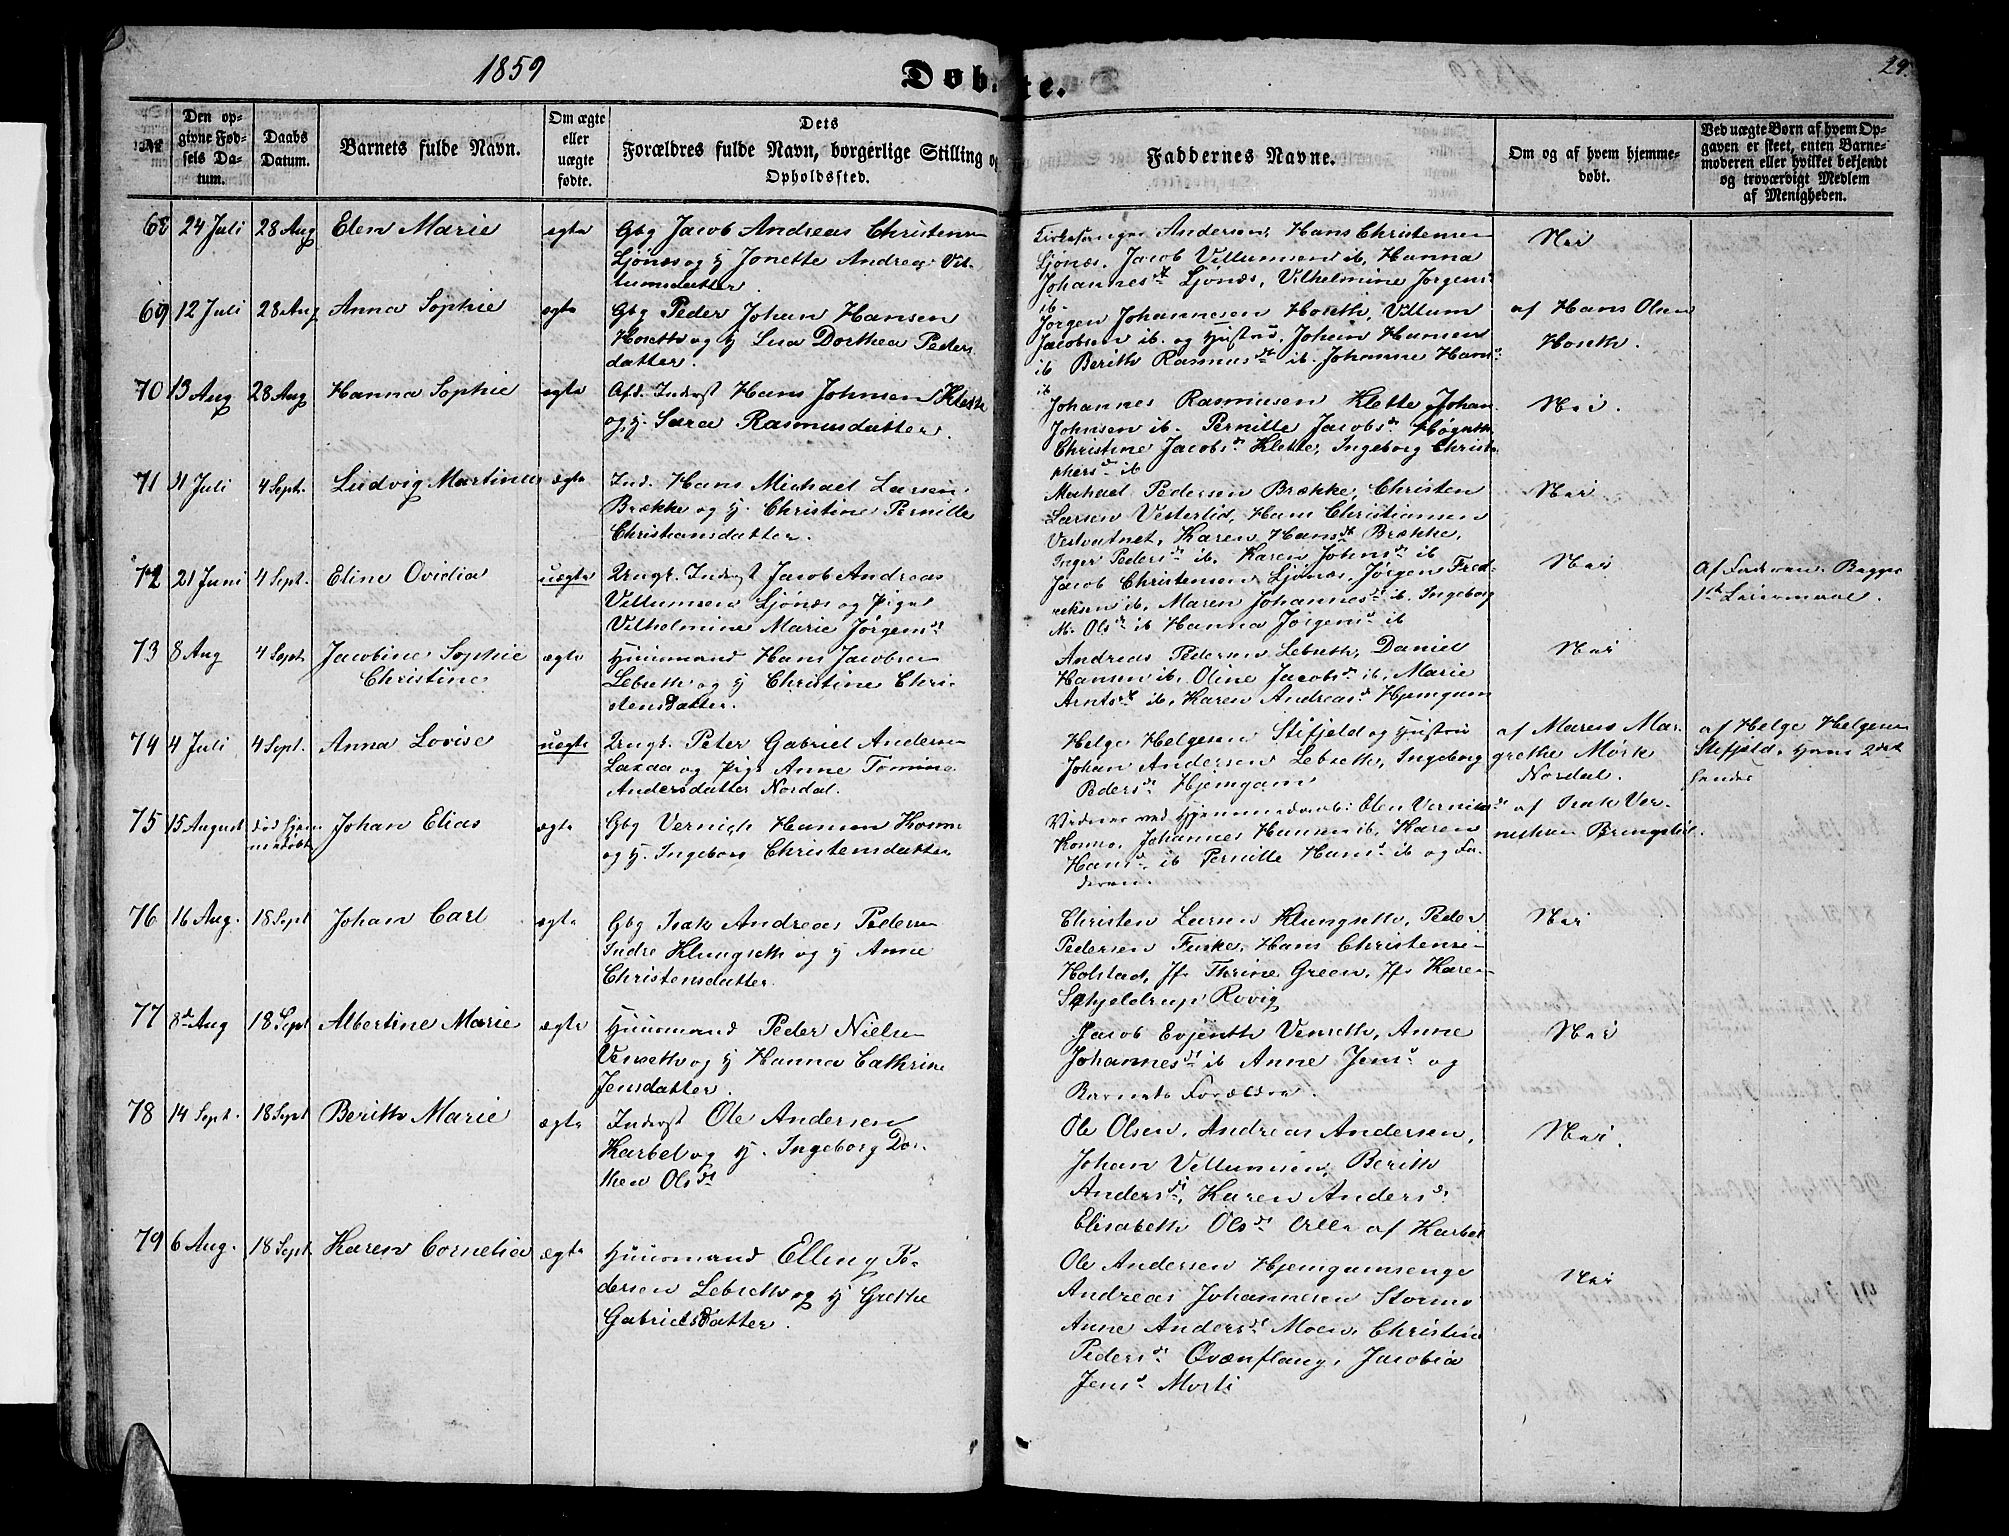 1859
Døbte.
29.
No
Den op-
givne Fød-
sels Da-
tum.
Daabs
Datum.
Barnets fulde Navn.
Om ægte
eller
uægte
fødte.
Dets
Forældres fulde Navn, borgerlige Stilling og
Opholdssted.
Faddernes Navne.
Om og af hvem hjemme-
døbt.
Ved uægte Børn af hvem Op-
gaven er skeet, enten Barne-
moderen eller hvilket bekjendt
og troværdigt Medlem
af Menigheden.
68 24 Juli 28 Aug Elen Marie ægte
Gbg Jacob Andreas Christensen
Ljønæs og H Jonette Andrea Vil-
lumsdatter.
Kirkesanger Andersen, Hans Christensen
Ljønæs, Jacob Villumsen ib, Hanna
Johannesdt Ljønæs, Vilhelmine Jørgensdt
ib.
Nei
69 12 Juli 28 Aug Anna Sophie ægte
Gbg Peder Johan Hansen
Hoseth og H Lisa Dorthea Peders
datter.
Jørgen Johannesen Hoseth, Villum
Jacobsen ib. og Hustru, Johan Hansen
ib Berith Rasmusdt ib. Johanne Hansdt
ib
af Hans Olsen
Hoseth.
70 13 Aug 28 Aug Hanna Sophie ægte
Afd. Inderst Hans Johnsen Klette
og H. Sara Rasmusdatter.
Johannes Rasmusen Klette, Johan
Johnsen ib. Pernille Jacobsdt
Christine Jacobsdt Klette, Ingeborg Christo-
phersdt ib
Nei.
71 11 Juli 4 Sept. Ludvig Martinus ægte
Ind. Hans Michael Larsen
Brække og H. Christine Pernille
Christiansdatter.
Michael Pedersen Brække, Christen
Larsen Vesterlid, Hans Christiansen
Vestvatnet, Karen Hansdt Brække,
Inger Pedersdt ib. Karen Johnsdt ib
Nei
72 21 Juni 4 Sept. Eline Ovidia uægte
Ungk. Inderst Jacob Andreas
Villumsen Ljønæs og Pige
Vilhelmine Marie Jørgensdt
Jacob Christensen Ljønæs, Jørgen Fred-
riksen ib, Maren Johannesdt ib, Ingeborg
M. Olsdt ib Hanna Jørgensdt ib
Nei
Af Faderen. Begges
1ste Leiermaal.
73 8 Aug 4 Sept Jacobine Sophie ægte
Christine
Huusmand Hans Jacobsen
Lebseth og H Christine Chri-
stensdatter.
Andreas Pedersen Lebseth, Daniel
Hansen ib, Oline Jacobsdt ib, Marie
Arntsdt ib, Karen Andreasdt Hjemgam
Nei
74 4 Juli 4 Sept. Anna Lovise uægte
Ungk. Peter Gabriel Andersen
Laxaa og Pige Anne Tomine
Andersdatter Nordal.
Helge Helgesen Stifjeld og Hustru
Johan Andersen Lebseth, Ingeborg
Pedersdt Hjemgam
af Maren Mar-
grethe Mørk
Nordal.
af Helge Helgesen
Stifjeld. Hans 2det
hendes
75 15 August død hjem
medøbt Johan Elias ægte
Gbg Vernich Hansen Kosmo
og H. Ingeborg Christensdatter.
Vidner ved Hjemmedaab: Elen Vernichsdt
Kosmo, Johannes Hansen ib, Karen
Hansdt ib Pernille Hansdt ib og Fa-
deren.
af Isak Ver-
nichsen Bringslid.
76 16 Aug. 18 Sept Johan Carl ægte
Gbg Isak Andreas Pedersen
Indre Klungseth og H Anne
Christensdatter.
Christen Larsen Klungseth, Peder
Pedersen Fuske, Hans Christensen
Holstad, Jfr Thrine Green, Jfr Karen
Schjeldrup Rovig
Nei
77 8de Aug 18 Sept Albertine Marie ægte
Huusmand Peder Nielsen
Venseth og H Hanna Cathrine
Jensdatter.
Jacob Evjenth Venseth, Anne
Johannesdt ib Anne Jensdt og
Barnets Forældre.
Nei
78 14 Sept. 18 Sept Berith Marie ægte
Inderst Ole Andersen
Karbøl og H. Ingeborg Dor-
thea Olsdt
Ole Olsen, Andreas Andersen,
Johan Villumsen, Berith
Andersdt, Karen Andersdt,
Elisabeth Olsdt Alle af Karbøl
Nei.
79 6 Aug. 18 Sept. Karen Cornelia ægte
Huusmand Elling Pe-
dersen Lebseth og H Grethe
Gabrielsdatter.
Ole Andersen Hjemgamsenge
Andreas Johannesen Stormo
Anne Andersdt Moen, Christine
Pedersdt Qvænflaug, Jacobia
Jensdt Morti
Nei